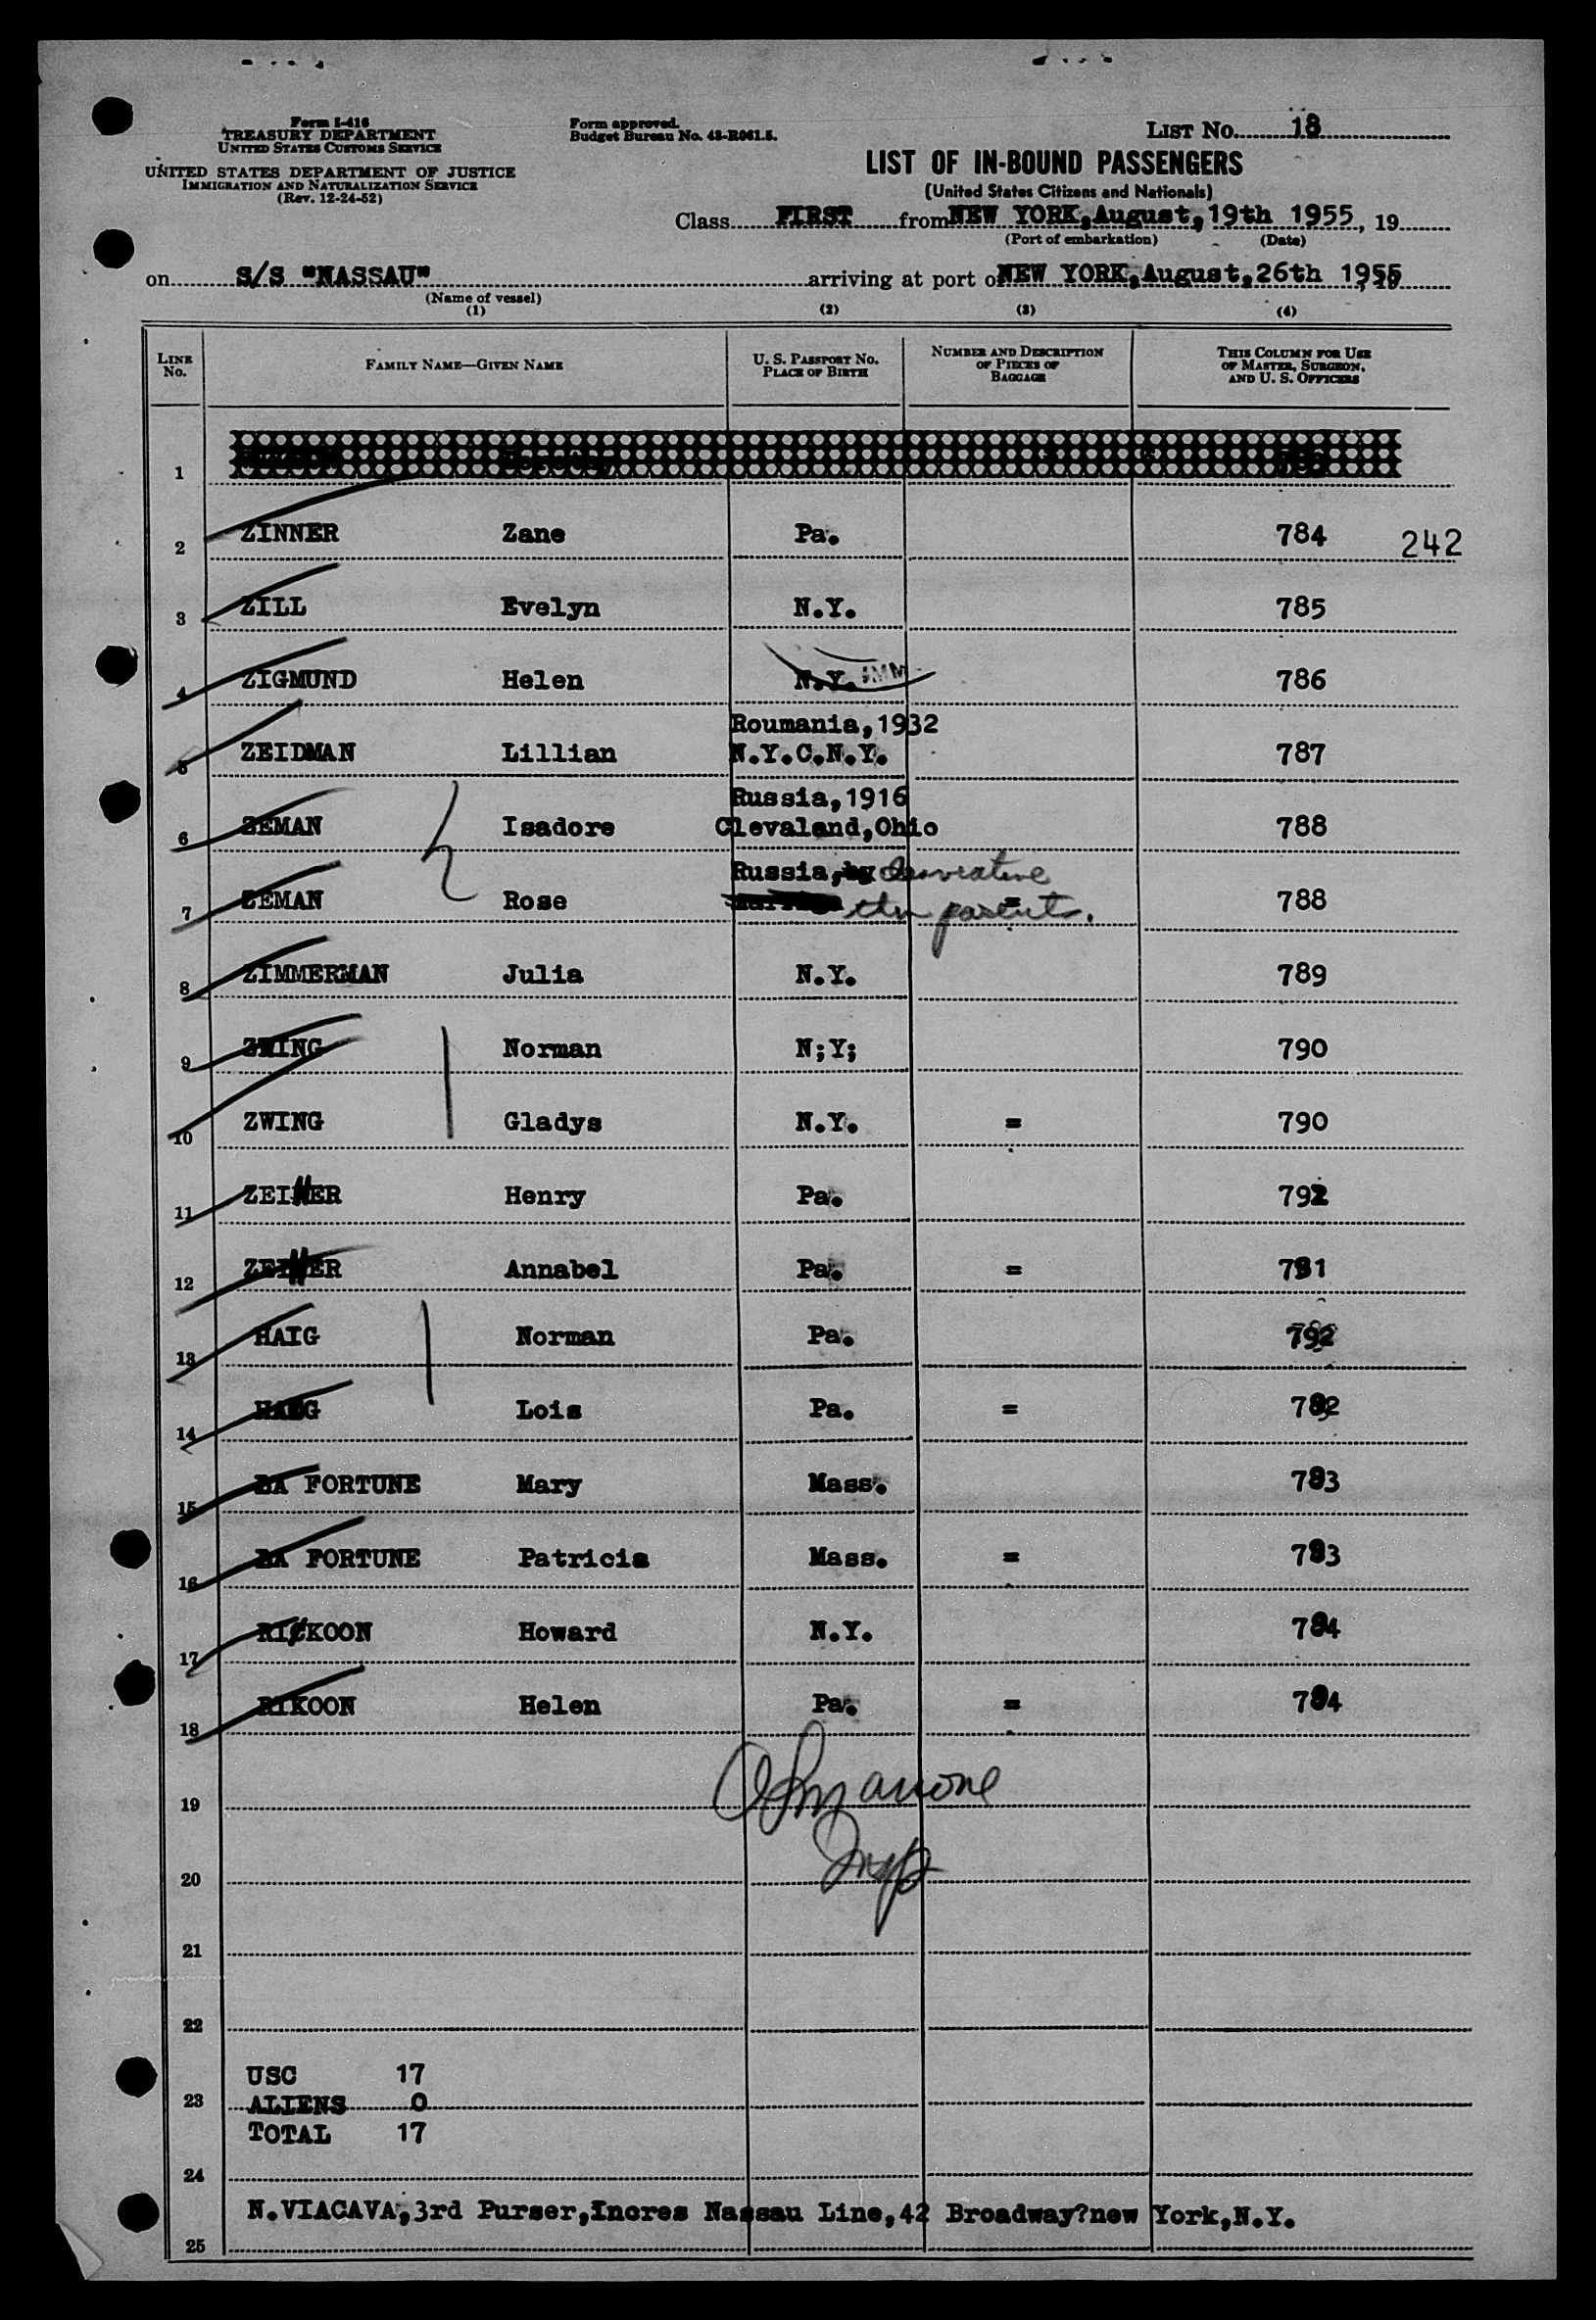 Form I-416
TREASURY DEPARTMENT
UNITED STATES CUSTOMS SERVICE
UNITED STATES DEPARTMENT OF JUSTICE
IMMIGRATION AND NATURALIZATION SERVICE
(Rev. 12-24-52)
Form approved.
Budget Bureau No. 43-R061.5.
LIST NO. 18
LIST OF IN-BOUND PASSENGERS
(United States Citizens and Nationals)
Class FIRST from NEW YORK, August, 19th 1955, 19
(Port of embarkation) (Date)
on S/S "NASSAU" arriving at port of NEW YORK, August, 26th 1955
(Name of vessel)
(1) (2) (3) (4)
LINE NO. FAMILY NAME—GIVEN NAME U. S. PASSPORT NO. PLACE OF BIRTH NUMBER AND DESCRIPTION OF PIECES OF BAGGAGE THIS COLUMN FOR USE OF MASTER, SURGEON, AND U. S. OFFICERS
1
2 ZINNER Zane Pa. 784 242
3 ZILL Evelyn N.Y. 785
4 ZIGMUND Helen N.Y. IMM 786
Roumania,1932
5 ZEIDMAN Lillian N.Y.C.N.Y. 787
Russia,1916
6 ZEMAN Isadore Clevaland,Ohio 788
Russia,by derivative
7 ZEMAN Rose thru parents. = 788
8 ZIMMERMAN Julia N.Y. 789
9 ZWING Norman N;Y; 790
10 ZWING Gladys N.Y. = 790
11 ZEINER Henry Pa. 792
12 ZEINER Annabel Pa. = 791
13 HAIG Norman Pa. 792
14 HAIG Lois Pa. = 792
15 FORTUNE Mary Mass. 793
16 FORTUNE Patricia Mass. = 793
17 RICKOON Howard N.Y. 794
18 RIKOON Helen Pa. = 794
19
Insp
20
21
22
USC 17
23 ALIENS 0
TOTAL 17
24
N.VIACAVA,3rd Purser,Incres Nassau Line,42 Broadway?new York,N.Y.
25